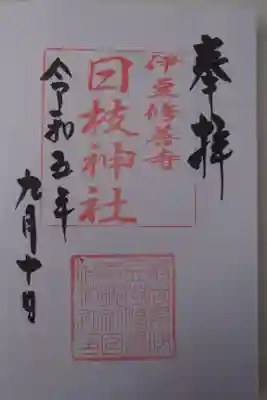 奉拝
伊豆修善寺
日枝神社
令和五年
九月十日